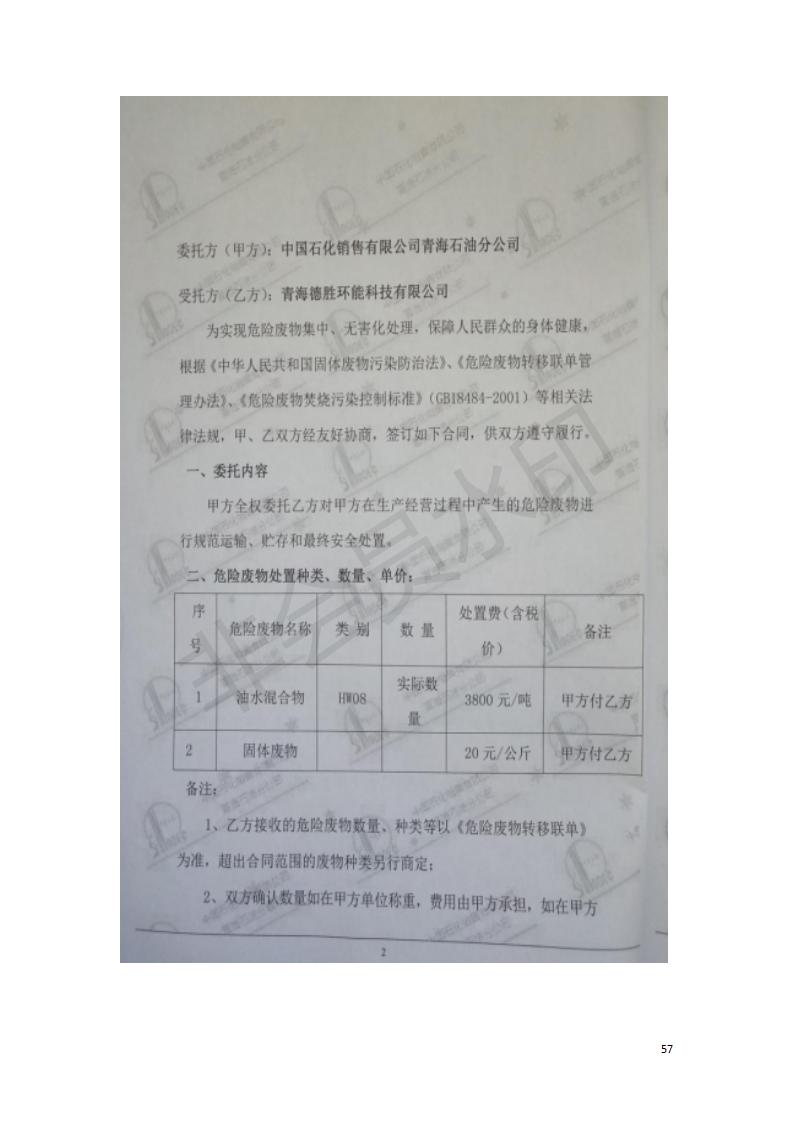 委托方（甲方）：中国石化销售有限公司青海石油分公司
受托方（乙方）：青海德胜环能科技有限公司
为实现危险废物集中、无害化处理，保障人民群众的身体健康，
根据《中华人民共和国固体废物污染防治法》、《危险废物转移联单管
理办法》、《危险废物焚烧污染控制标准》（GB18484-2001）等相关法
律法规，甲、乙双方经友好协商，签订如下合同，供双方遵守履行。
一、委托内容
甲方全权委托乙方对甲方在生产经营过程中产生的危险废物进
行规范运输、贮存和最终安全处置。
二、危险废物处置种类、数量、单价：
序号 危险废物名称 类别 数量 处置费（含税价） 备注
1 油水混合物 HW08 实际数量 3800 元/吨 甲方付乙方
2 固体废物 20 元/公斤 甲方付乙方
备注：
1、乙方接收的危险废物数量、种类等以《危险废物转移联单》
为准，超出合同范围的废物种类另行商定；
2、双方确认数量如在甲方单位称重，费用由甲方承担，如在甲方
2
非会员水印
57